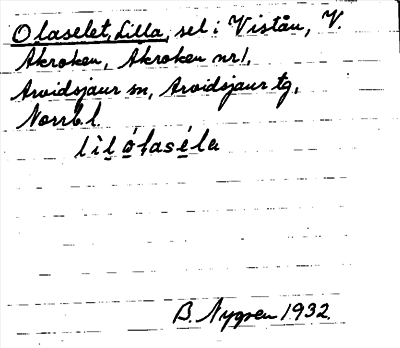 Olaselet, Lilla, sel i Vistån, V.
Akroken, Akroken nr 1,
Arvidsjaur sn, Arvidsjaur tg,
Norrb. l.
lìl ólaséla
B. Nygren 1932.